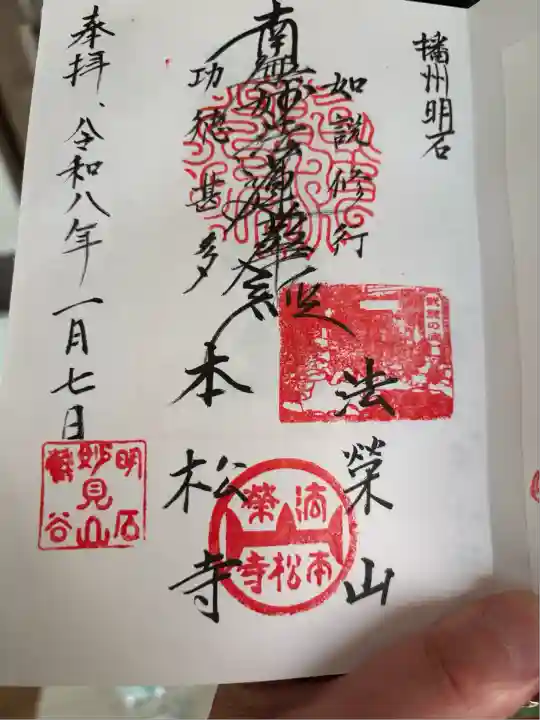 播州明石
如説修行
南無妙法蓮華経
功徳甚多
法榮山
本松寺
奉拝、令和八年一月七日
法榮
本松寺
明石
妙見山
谷